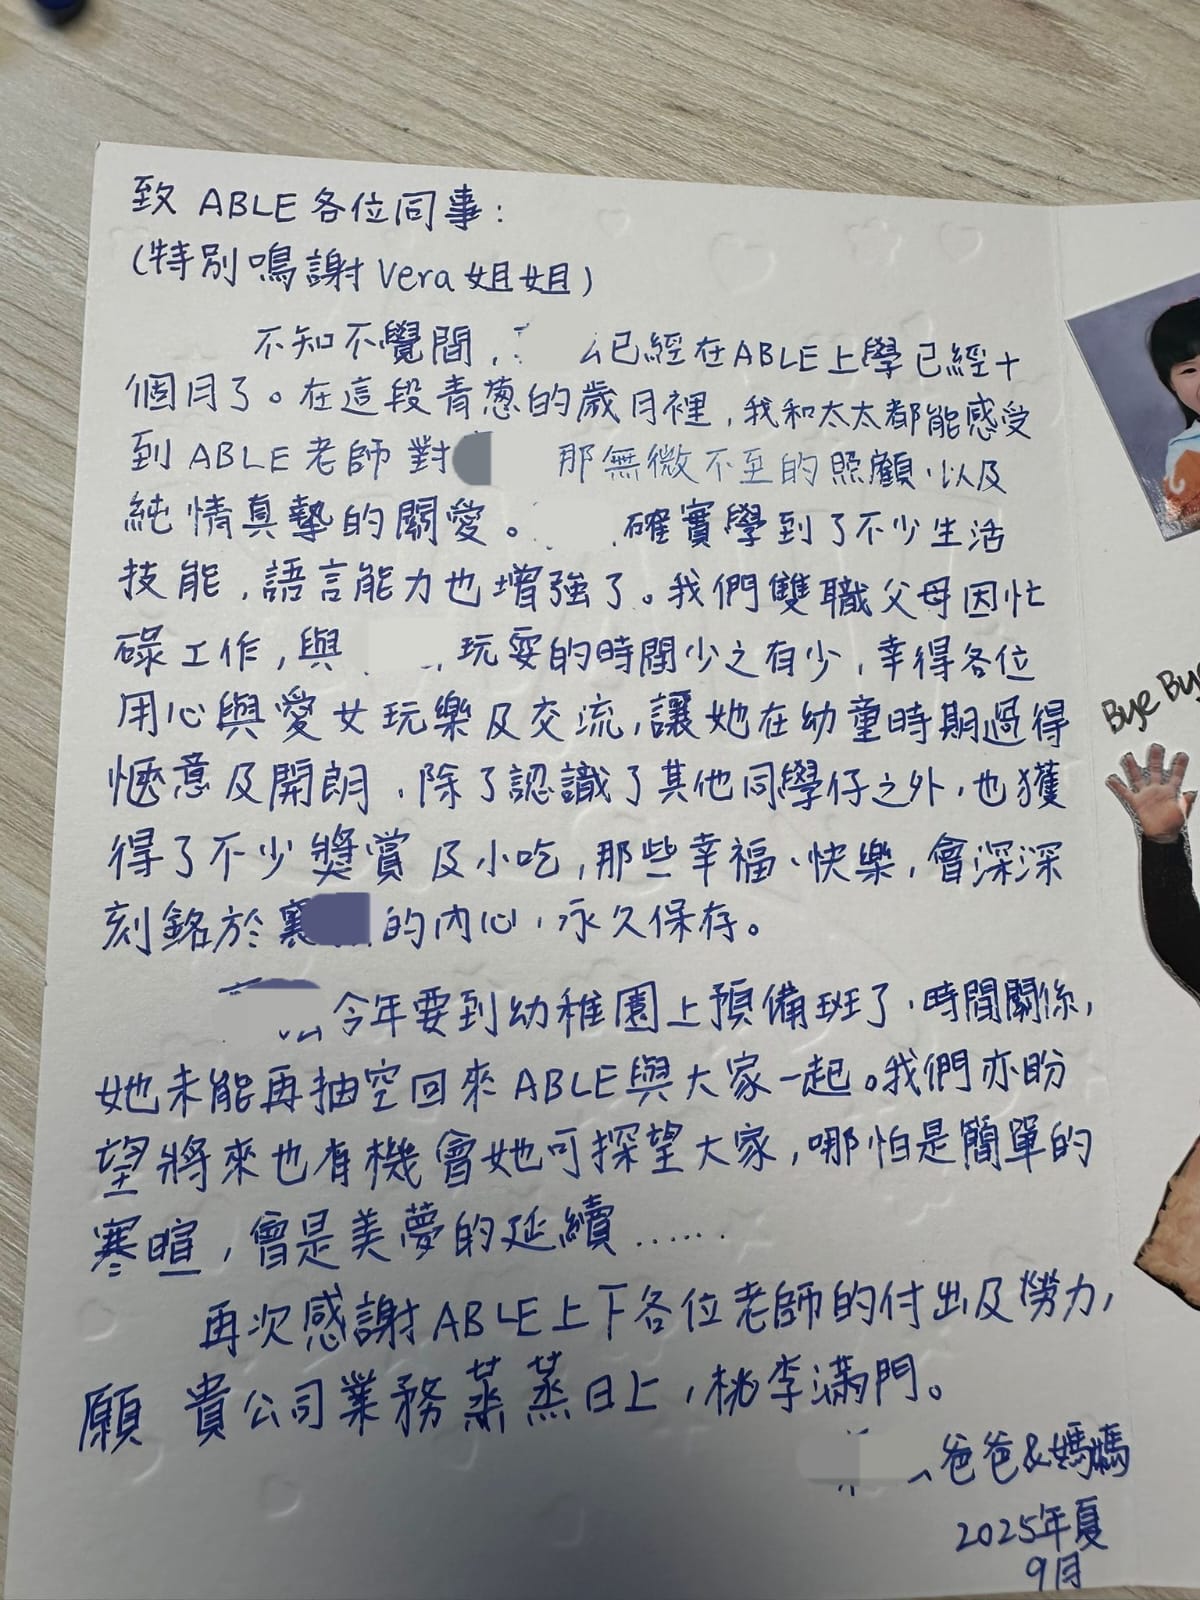 致 ABLE 各位同事:
(特別鳴謝 Vera 姐姐)
不知不覺間, 已經在ABLE上學已經十
個月了。在這段青葱的歲月裡,我和太太都能感受
到 ABLE 老師對 那無微不至的照顧,以及
純情真摯的關愛。 確實學到了不少生活
技能,語言能力也增強了。我們雙職父母因忙
碌工作,與 ,玩耍的時間少之有少,幸得各位
用心與愛女玩樂及交流,讓她在幼童時期過得
愜意及開朗,除了認識了其他同學仔之外,也獲
得了不少獎賞及小吃,那些幸福、快樂,會深深
刻銘於 的內心,永久保存。
今年要到幼稚園上預備班了,時間關係,
她未能再抽空回來 ABLE與大家一起。我們亦盼
望將來也有機會她可探望大家,哪怕是簡單的
寒暄,會是美夢的延續……
再次感謝ABLE上下各位老師的付出及勞力,
願 貴公司業務蒸蒸日上,桃李滿門。
爸爸&媽媽
2025年夏
9月
Bye Bye